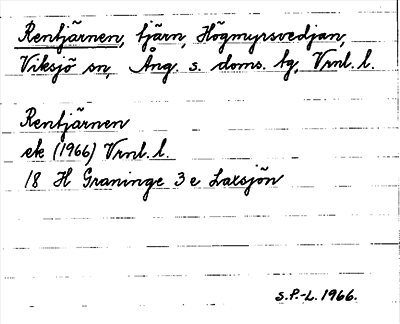 Rentjärnen, tjärn, Högmyrsvedjan,
Viksjö sn, Ång. s. doms. tg, Vrnl. l.
Rentjärnen
ek (1966) Vrnl. l.
18 H Graninge 3 e Laxsjön
S.P.-L. 1966.